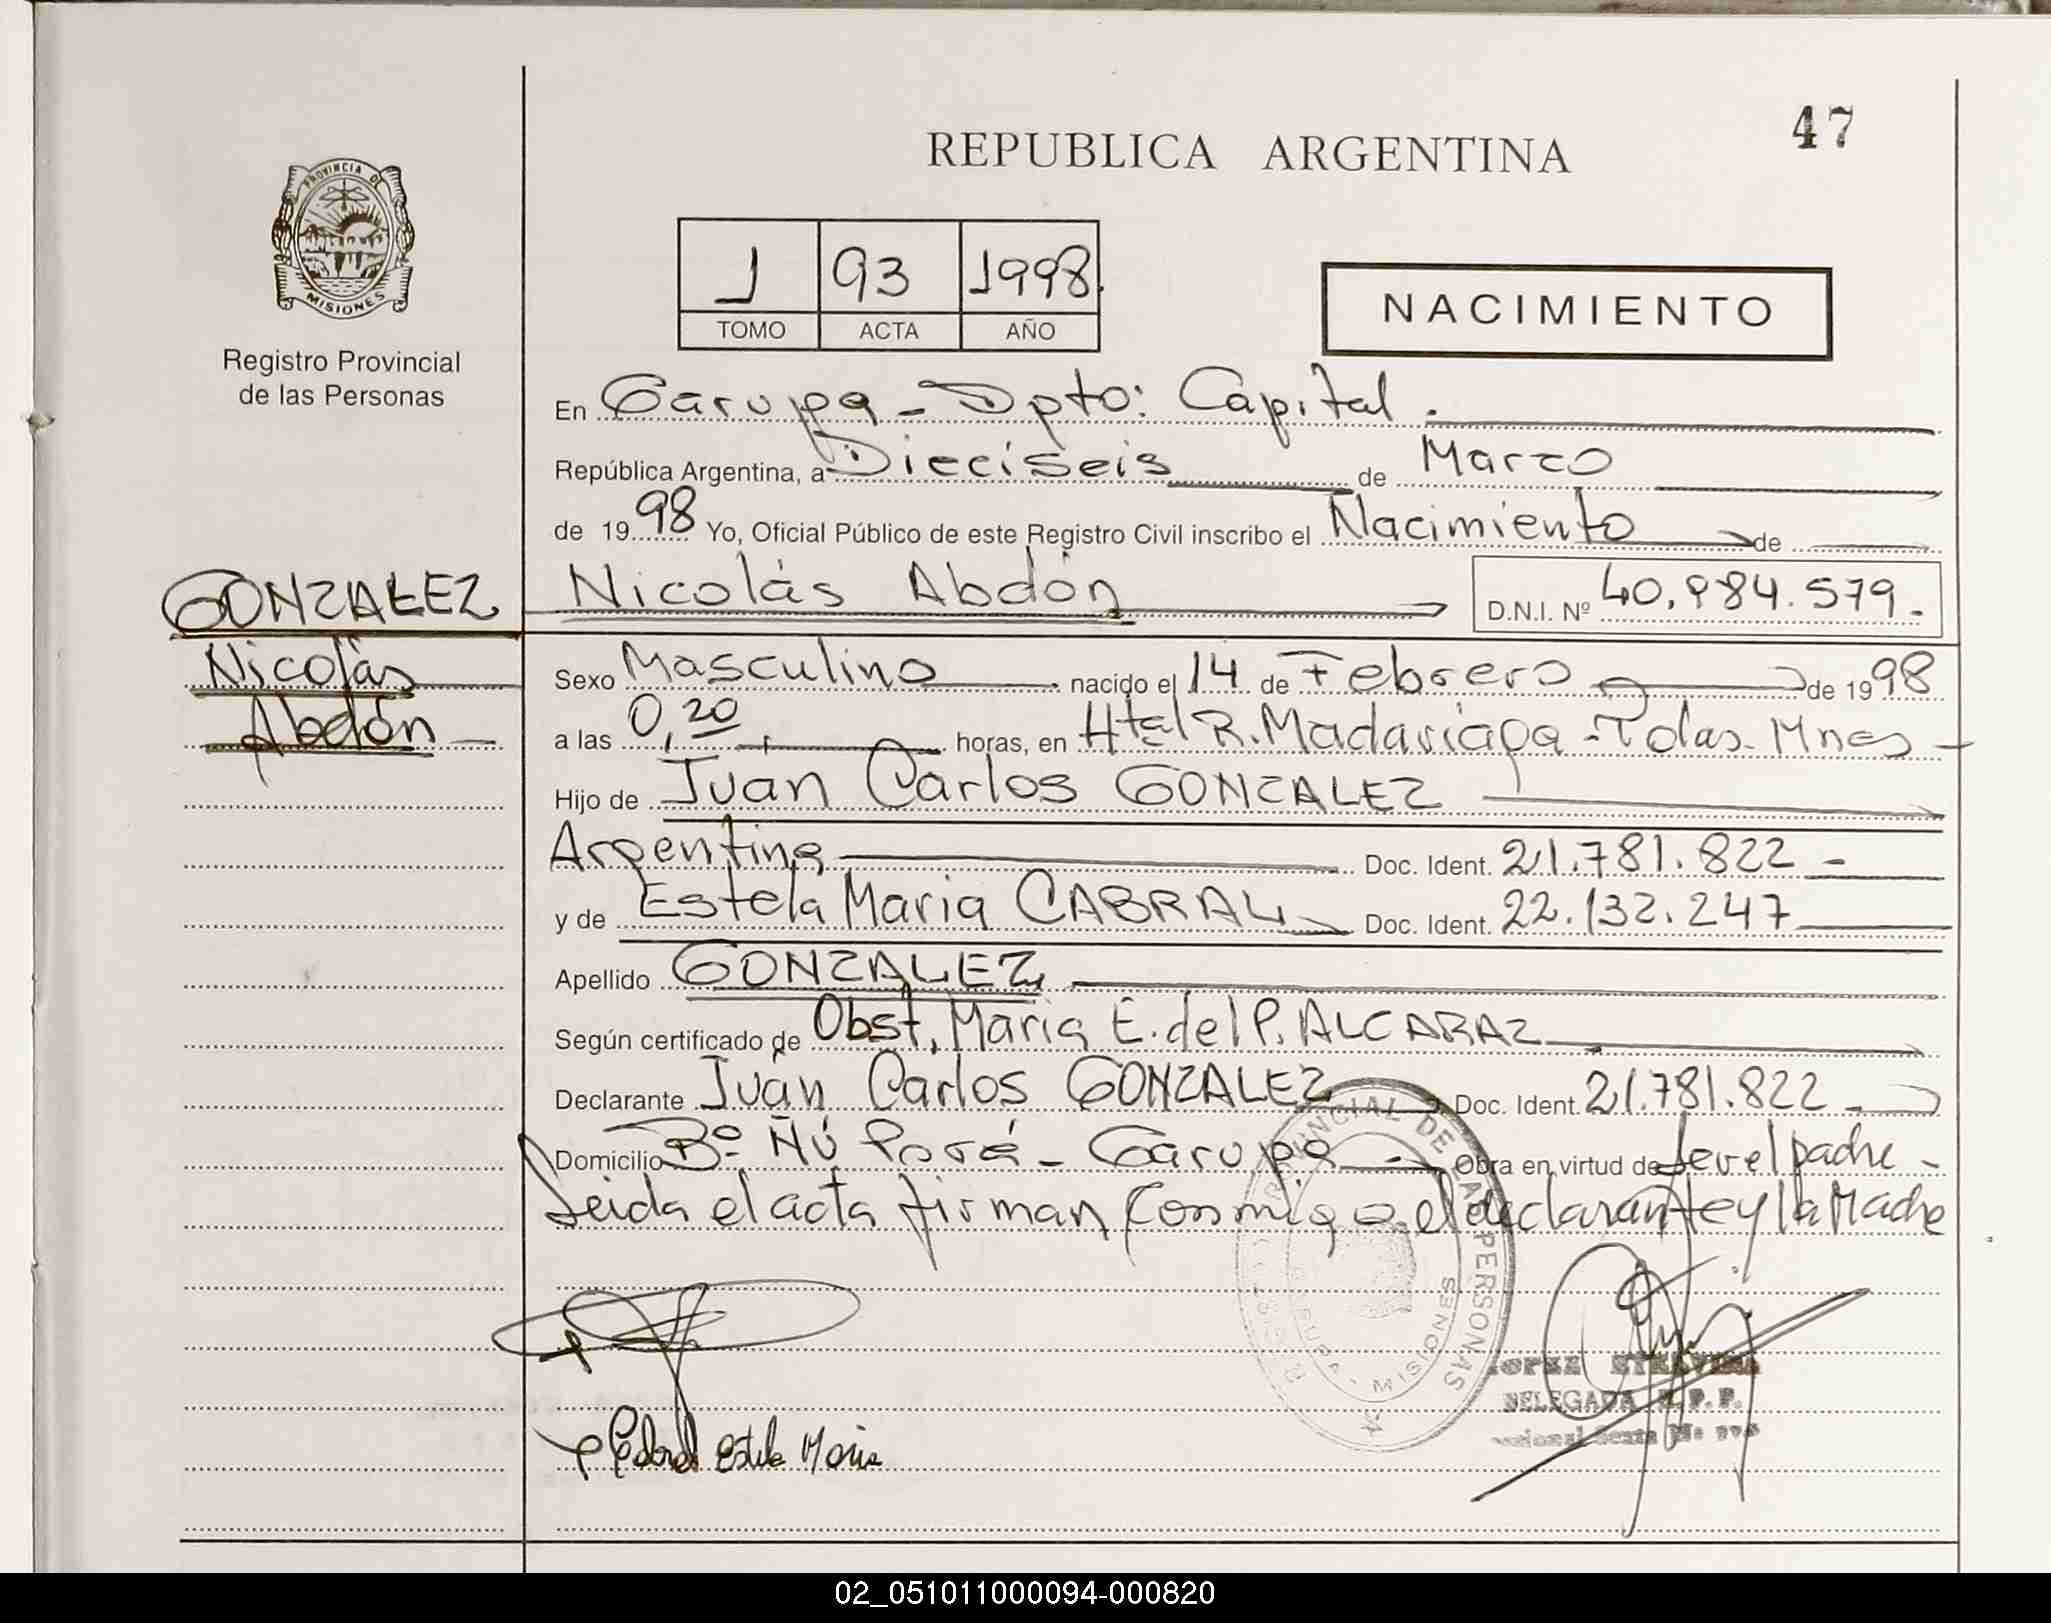 47
REPUBLICA ARGENTINA
PROVINCIA DE
MISIONES
Registro Provincial
de las Personas
1 93 1998
TOMO ACTA AÑO
NACIMIENTO
En Garupa - Dpto: Capital.
República Argentina, a Dieciseis de Marzo
de 1998 Yo, Oficial Público de este Registro Civil inscribo el Nacimiento de
GONZALEZ Nicolás Abdón D.N.I. Nº 40.984.579.-
Nicolás Sexo Masculino nacido el 14 de Febrero de 1998
Abdón a las 0,20 horas, en Htal R. Madariaga - Pdas. Mnes -
Hijo de Juan Carlos GONZALEZ
Argentina Doc. Ident. 21.781.822 -
y de Estela Maria CABRAL Doc. Ident. 22.132.247
Apellido GONZALEZ
Según certificado de Obst. Maria E. del P. ALCARAZ
Declarante Juan Carlos GONZALEZ Doc. Ident. 21.781.822 -
Domicilio Bº Ñú Porá - Garupa - Obra en virtud de ser el padre -
Leida el acta firman conmigo el declarante y la Madre
REGISTRO PROVINCIAL DE LAS PERSONAS
GARUPA - MISIONES
DELEGADA R.P.P.
Estela Maria
02_051011000094-000820